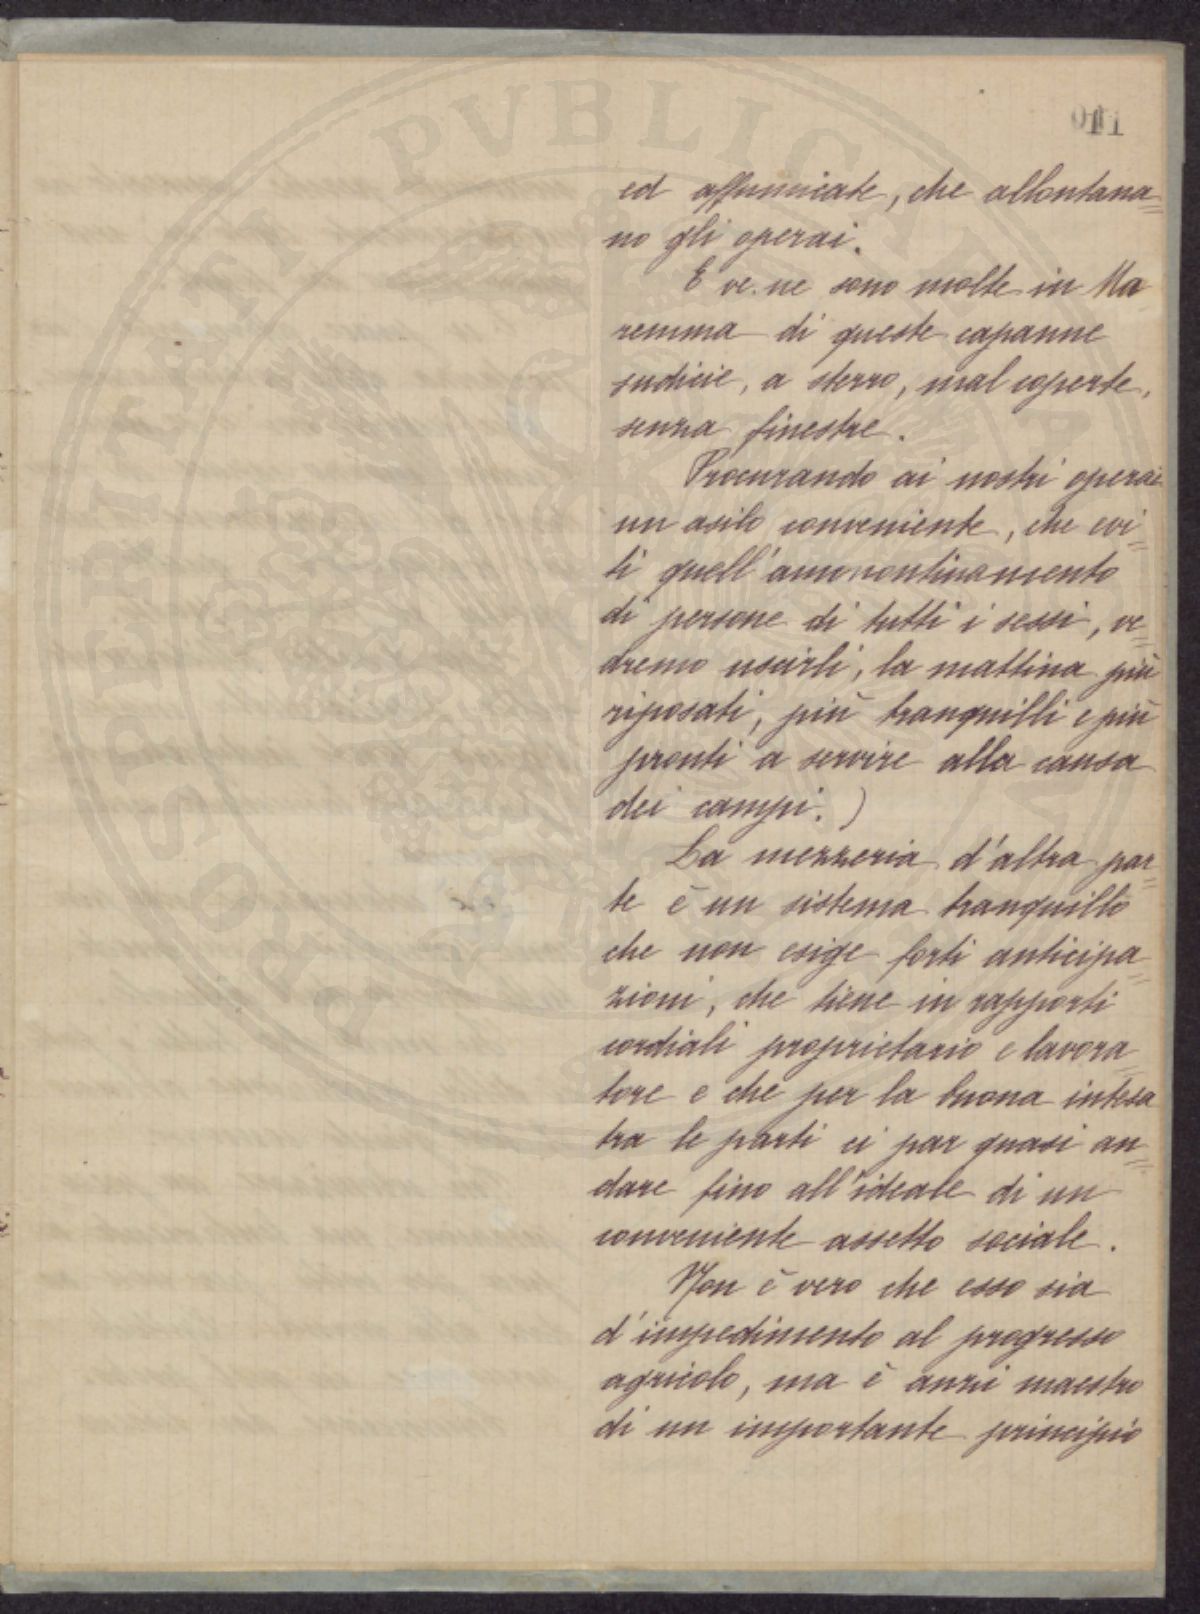 ed affumicate, che allontana=
no gli operai.
E ve ne sono molte in Ma
remma di queste capanne
sudicie, a sterro, mal coperte,
senza finestre.
Procurando ai nostri operai
un asilo conveniente, che evi=
ti quell'ammonticchiamento
di persone di tutti i sessi, ve=
dremo uscirli, la mattina più
riposati, più tranquilli e più
pronti a servire alla causa
dei campi.)
La mezzeria d'altra par=
te è un sistema tranquillo
che non esige forti anticipa=
zioni, che tiene in rapporti
cordiali proprietario e lavora=
tore e che per la buona intesa
tra le parti ci par quasi an=
dare fino all'ideale di un
conveniente assetto sociale.
Non è vero che esso sia
d'impedimento al progresso
agricolo, ma è anzi maestro
di un importante principio
PROSPERITATI PVBLICAE